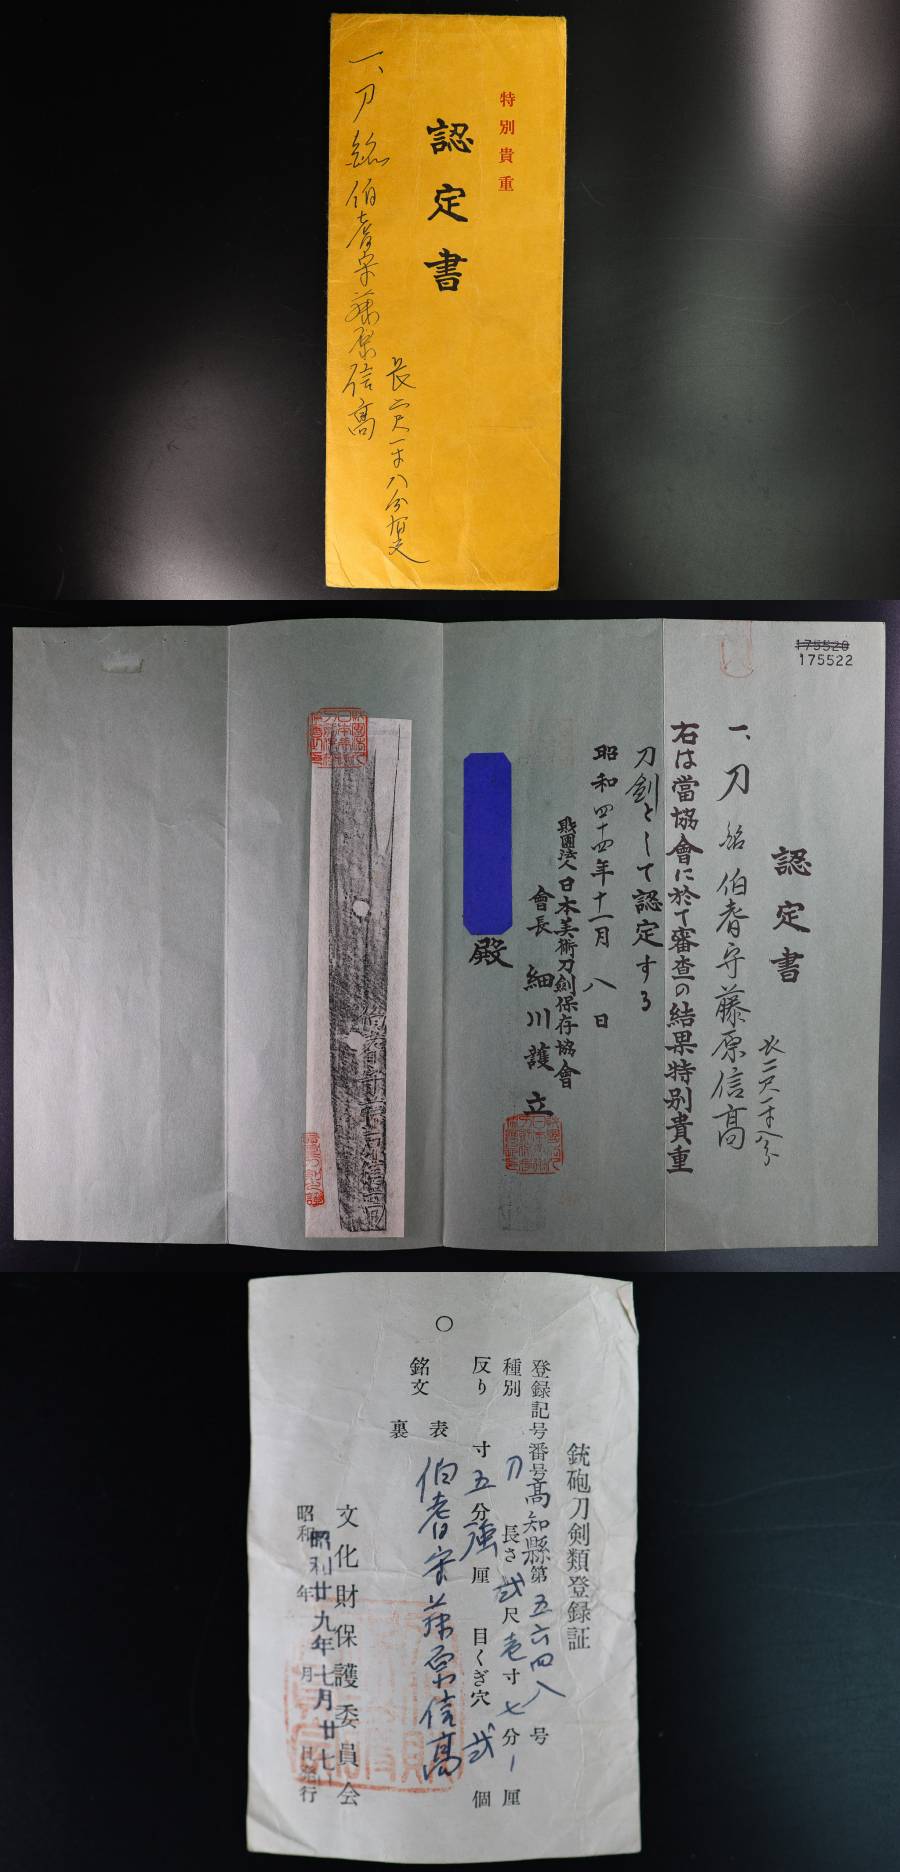 特別貴重
認定書
一、刀 銘 伯耆守藤原信高
長二尺一寸八分有之
175520
175522
認定書
一、刀 銘 伯耆守藤原信高
長二尺一寸八分
右は當協會に於て審査の結果特別貴重
刀劍として認定する
昭和四十四年十一月八日
財團法人日本美術刀劍保存協會
會長 細川護立
殿
伯耆守藤原信高
銃砲刀剣類登録証
登録記号番号高知縣第五六四八号
種別 刀 長さ 弐尺壱寸七分 厘
反り 寸五分強厘 目くぎ穴 弐個
銘文 表 伯耆守藤原信高
裏
文化財保護委員会
昭和 年 月 日発行
昭和廿九年七月廿七日